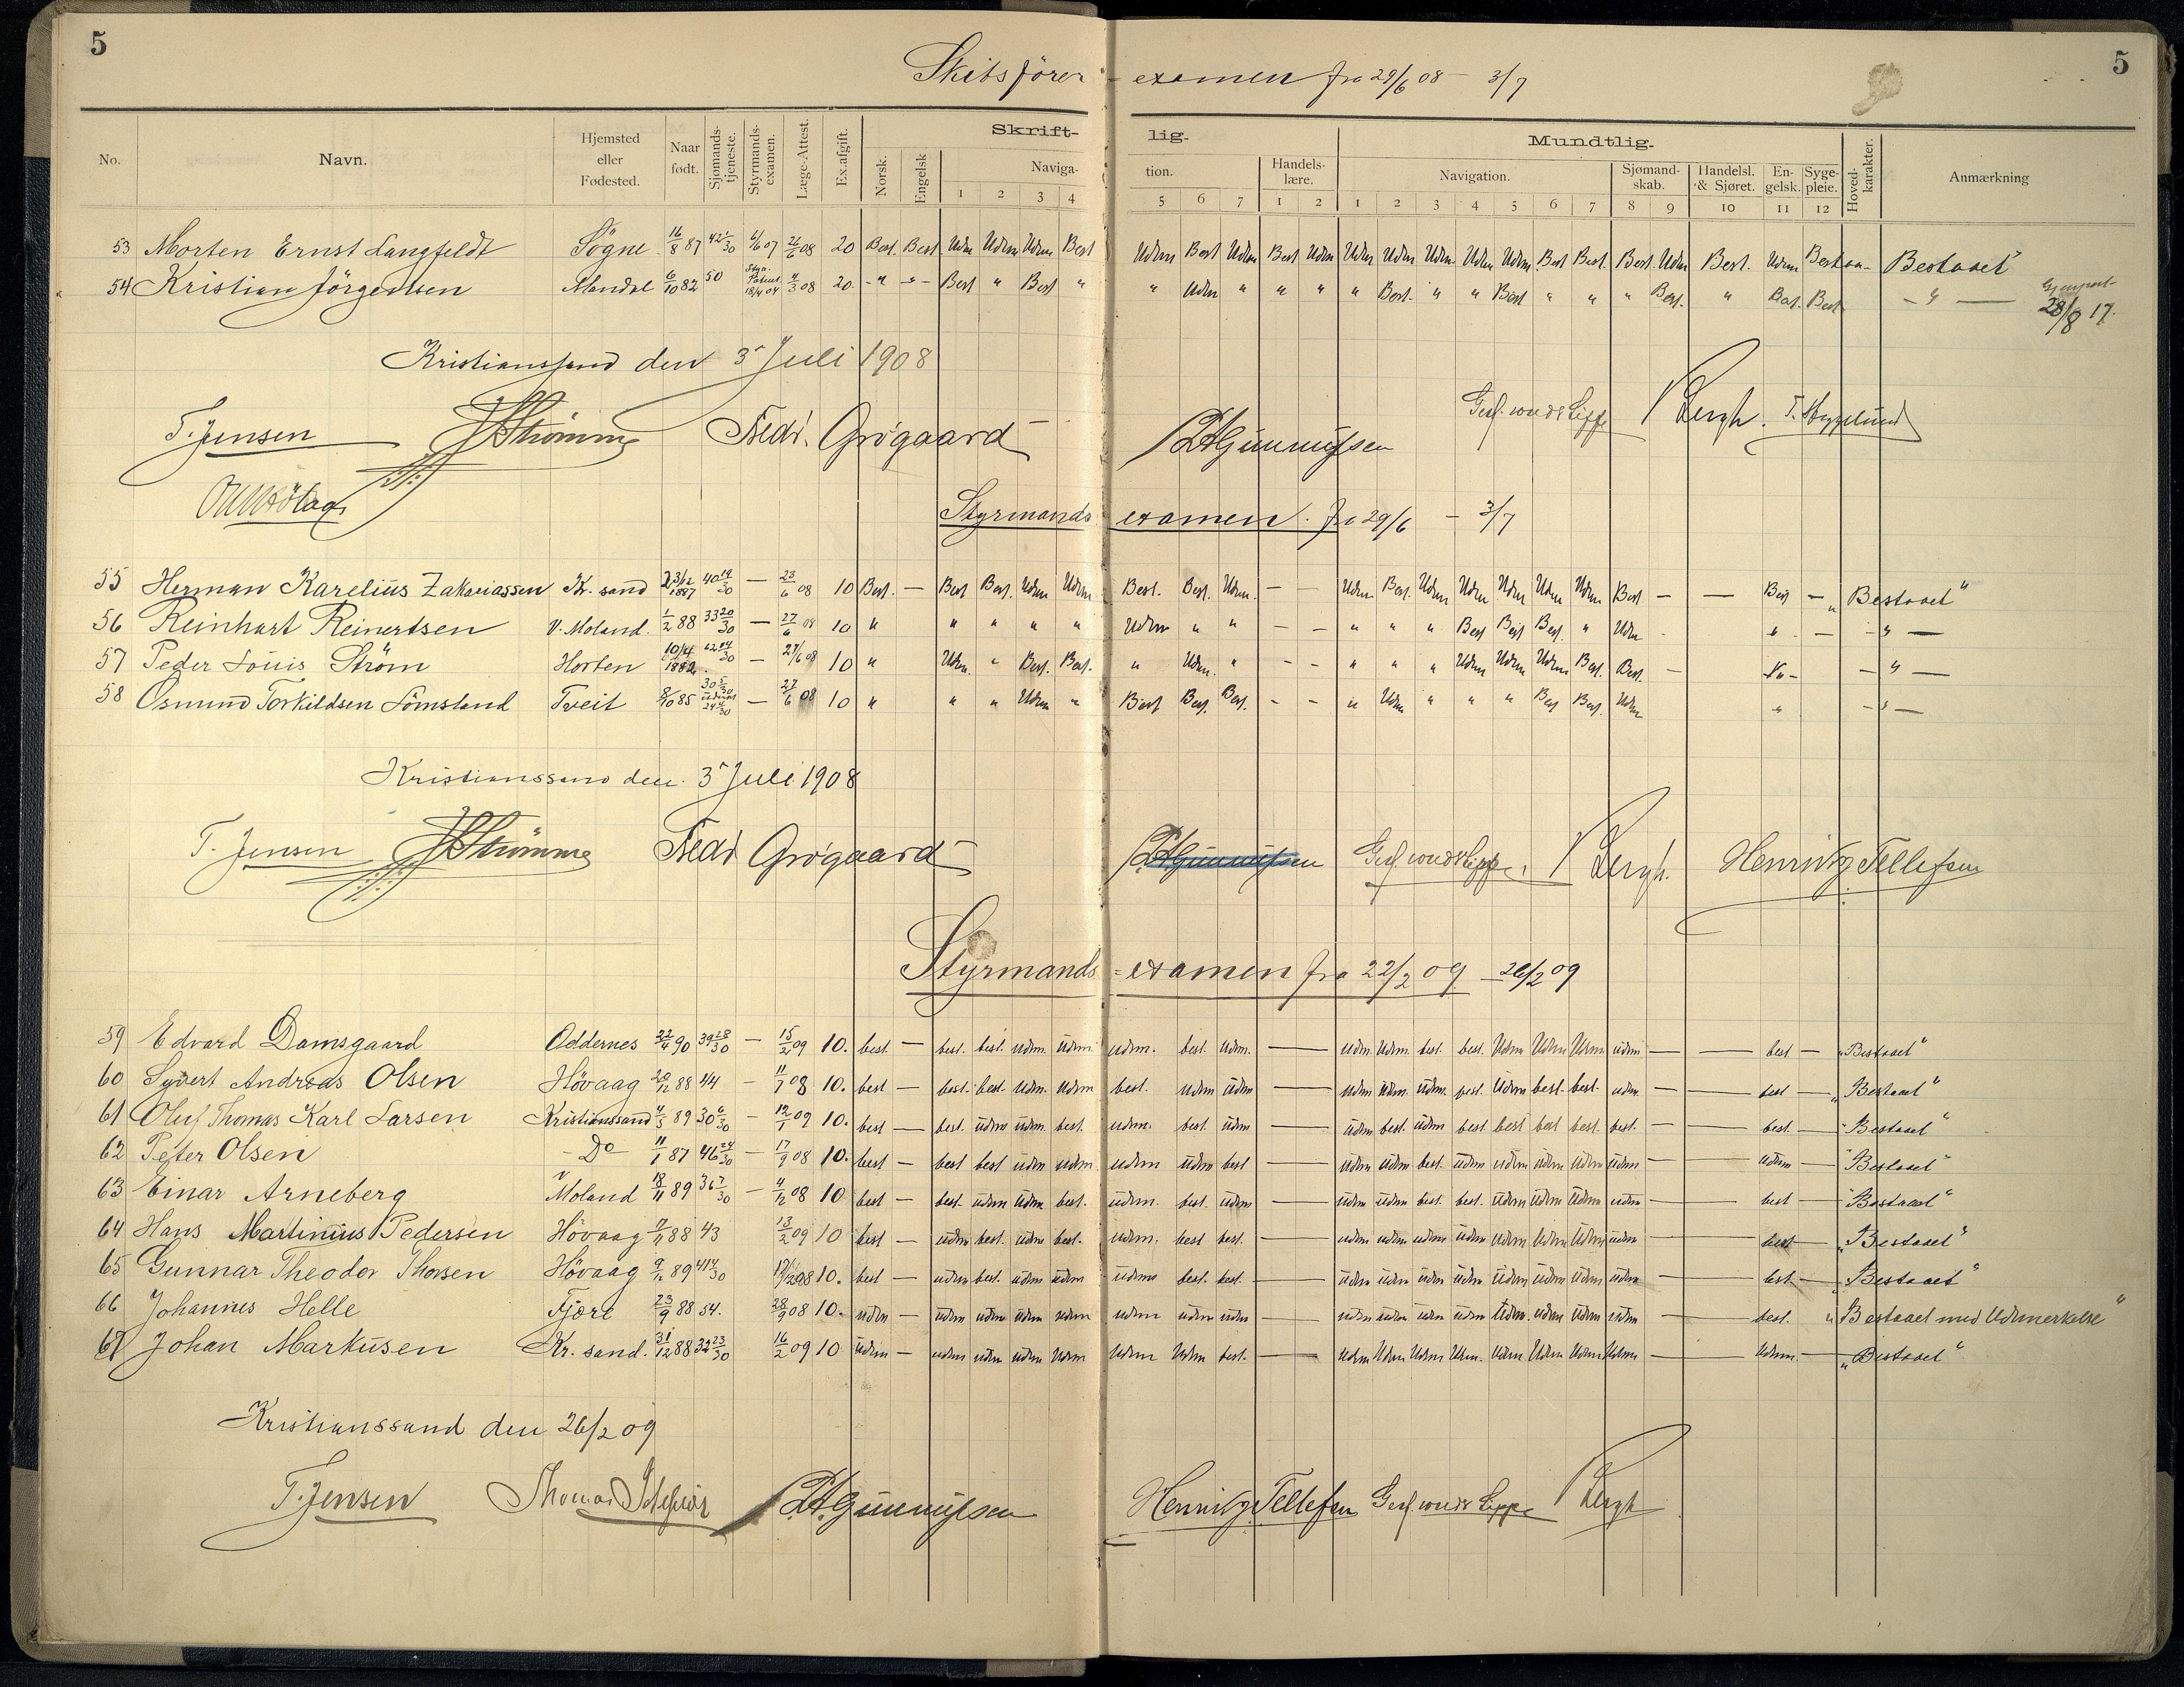 5 5
Skibsförer-examen fra 29/6 08 - 3/7
No. Navn. Hjemsted eller Fødested. Naar født. Sjømands-tjeneste. Styrmands-examen. Læge-Attest. Ex.afgift. Skrift-lig. Mundtlig. Hoved-karakter. Anmærkning
Norsk. Engelsk Naviga-tion. Handels-lære. Navigation. Sjømand-skab. Handelsl. & Sjøret. En-gelsk. Syge-pleie.
1 2 3 4 5 6 7 1 2 1 2 3 4 5 6 7 8 9 10 11 12
53 Morten Ernst Langfeldt Søgne 16/8 87 42 1/30 6/6 07 26/6 08 20 Best. Best. Udm Udm Udm Best Udm Best Udm Best Udm Udm Udm Udm. Udm Udm Best Best. Best. Udm Best. Udm Best "Bestaaet"
54 Kristian Jörgensen Mandal 6/10 82 50 18/4 04 4/3 08 20 - " - - " - Best " Best " " Udm " " " " Best. " " Best " " " Best. " Best. Best - " - 28/8 17.
Kristianssand den 3 Juli 1908
T. Jensen Strømme Fredr. Grögaard P.A. Gunnufsen Bergh.
Styrmands examen. fra 29/6 - 3/7
55 Herman Karelius Zakariassen Kr. sand 23/12 1887 40 19/30 — 23/6 08 10 Best. — Best Best. Udm Udm Best. Best. Udm. - - Udm Best. Udm Udm Udm Udm Udm Best — — Best — "Bestaaet"
56 Reinhart Reinertsen V. Moland. 1/2 88 33 20/30 — 27/6 08 10 " " " " " Udm " " - - " " " Best Best Best. " Udm " — - " —
57 Peder Louis Ström Horten 10/4 1882. — 27/6 08 10 " Udm. " Best. Best. " Udm. " - - " " " Udm Udm Udm Best. Best. — - " - - " —
58 Osmund Torkildsen Lömsland Tveit 8/10 85 30 5/30 — 27/6 08 10 " " " Udm " Best Best. Best. - - " Udm " " " Best Best. Udm " - " —
Kristianssand den 3 Juli 1908
T. Jensen Strømme Fredr Grögaard P.A. Gunnufsen Bergh. Henrik Tellefsen
Styrmands-examen fra 22/2 09 - 26/2 09
59 Edvard Damsgaard Oddernes 22/4 90 39 28/30 — 15/2 09 10. best. — best. best. udm. udm. udm. best. udm. — udm Udm. best. best. Udm Udm Udm udm — — best — "Bestaaet"
60 Syvert Andreas Olsen Hövaag 20/12 88 44 — 11/7 08 10. best — best. best udm. udm best. udm udm — udm udm. udm. best. Udm best. best. udm. — — best — "Bestaaet"
61 Oluf Thomas Karl Larsen Kristianssand 4/3 89 30 6/30 — 12/1 09 10. best — best. udm udm. best. udm. best. udm — udm best. udm best best best best. best. — — best. — "Bestaaet"
62 Peter Olsen - Do - 11/1 87 46 24/30 — 17/9 08 10. best — best best udm udm. udm udm best — udm udm best. udm udm udm udm udm — — udm — "Bestaaet"
63 Einar Arneberg V Moland 18/11 89 36 7/30 — 4/12 08 10 best — best. udm udm best. udm. best. udm — udm udm best. best. udm udm udm udm — — best — "Bestaaet"
64 Hans Martinius Pedersen Hövaag 88 43 13/2 09 10 best — udm best. udm best. udm. best best. — udm udm udm udm udm Udm Udm udm — — best — "Bestaaet"
65 Gunnar Theodor Thorsen Hövaag 9/12 89 08 10. best — udm best. udm udm udm best. best. — udm udm udm udm udm udm udm udm — — best — "Bestaaet"
66 Johannes Helle Fjære 23/9 88 54. 28/9 08 10. udm — udm udm udm udm udm udm udm — udm udm udm udm Udm. udm udm udm — — best. "Bestaaet med Udmerkelse"
67 Johan Markusen Kr. sand. 31/12 88 32 23/30 16/2 09 10 udm — udm udm udm Udm Udm Udm best. — Udm Udm Udm Udm. Udm Udm Udm Udm — — Udm. — "Bestaaet"
Kristianssand den 26/2 09
T. Jensen Thomas P.A. Gunnufsen Henrik Tellefsen Bergh